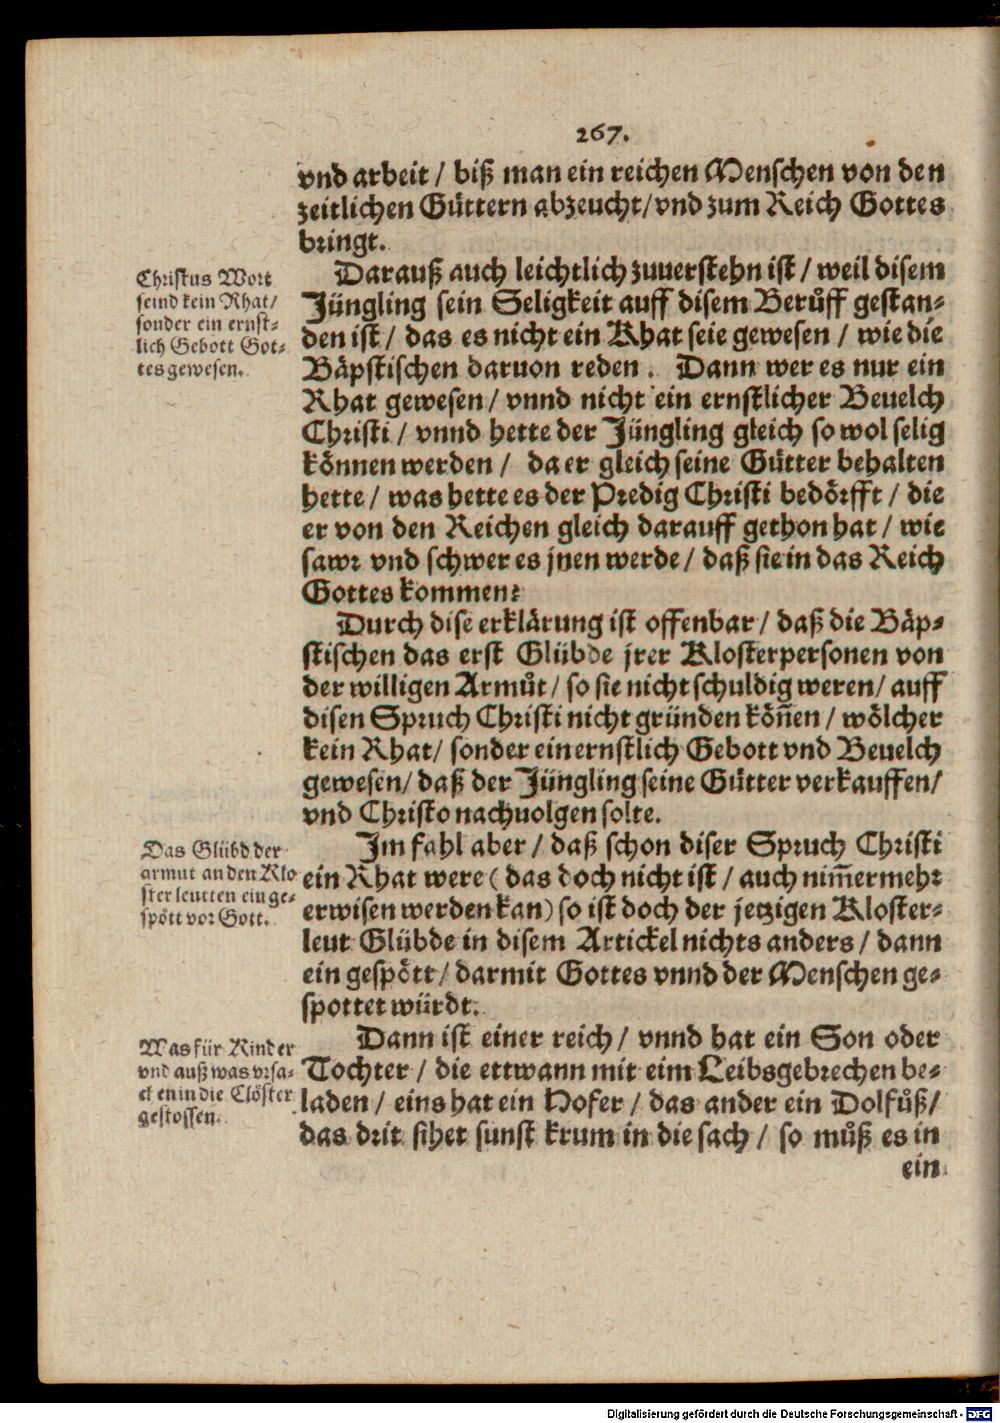 267.
vnd arbeit / biß man ein reichen Menschen von den
zeitlichen Gůttern abzeucht/ vnd zum Reich Gottes
bringt.
Christus Wort
seind kein Rhat/
sonder ein ernst⸗
lich Gebott Got⸗
tes gewesen.
Darauß auch leichtlich zuuerstehn ist / weil disem
Jüngling sein Seligkeit auff disem Berůff gestan⸗
den ist / das es nicht ein Rhat seie gewesen / wie die
Bäpstischen daruon reden. Dann wer es nur ein
Rhat gewesen / vnnd nicht ein ernstlicher Beuelch
Christi / vnnd hette der Jüngling gleich so wol selig
können werden / da er gleich seine Gütter behalten
hette / was hette es der Predig Christi bedörfft / die
er von den Reichen gleich darauff gethon hat / wie
sawr vnd schwer es jnen werde / daß sie in das Reich
Gottes kommen?
Durch dise erklärung ist offenbar / daß die Bäp⸗
stischen das erst Glübde jrer Klosterpersonen von
der willigen Armůt / so sie nicht schuldig weren / auff
disen Spruch Christi nicht gründen köñen / wölcher
kein Rhat / sonder ein ernstlich Gebott vnd Beuelch
gewesen / daß der Jüngling seine Gütter verkauffen /
vnd Christo nachuolgen solte.
Das Glübd der
armut an den Klo
sterleutten ein ge⸗
spött vor Gott.
Im fahl aber / daß schon diser Spruch Christi
ein Rhat were ( das doch nicht ist / auch nim̃ermehr
erwisen werden kan) so ist doch der jetzigen Kloster⸗
leut Glübde in disem Artickel nichts anders / dann
ein gespött / darmit Gottes vnnd der Menschen ge⸗
spottet würdt.
Was für Kinder
vnd auß was vrsa⸗
chen in die Clöster
gestossen.
Dann ist einer reich / vnnd hat ein Son oder
Tochter / die ettwann mit eim Leibsgebrechen be⸗
laden / eins hat ein Hofer / das ander ein Dolfůß /
das drit sihet sunst krum in die sach / so můß es in
ein
Digitalisierung gefördert durch die Deutsche Forschungsgemeinschaft - DFG